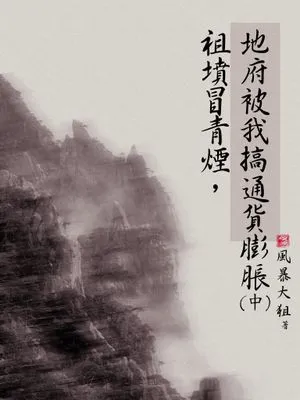 祖墳冒青煙，
地府被我搞通貨膨脹(中)
風暴大狙 著